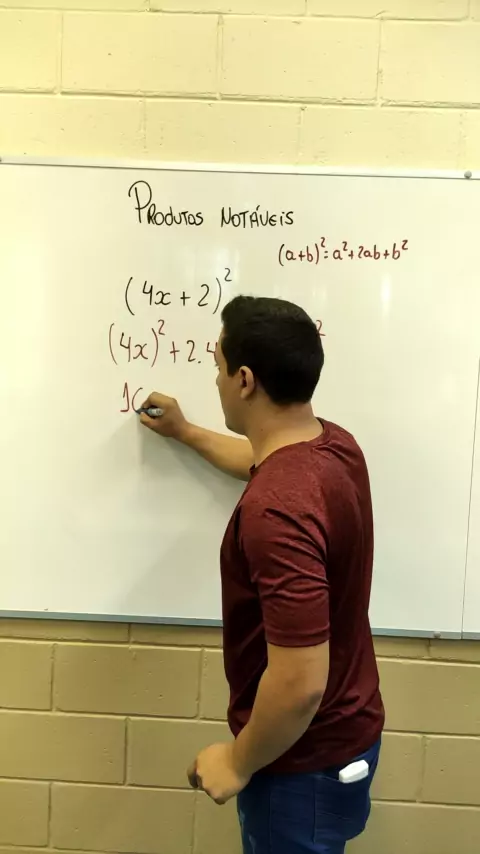 PRODUTOS NOTÁVEIS
(a+b)²=a²+2ab+b²
(4x+2)²
(4x)²+2.4 ²
1